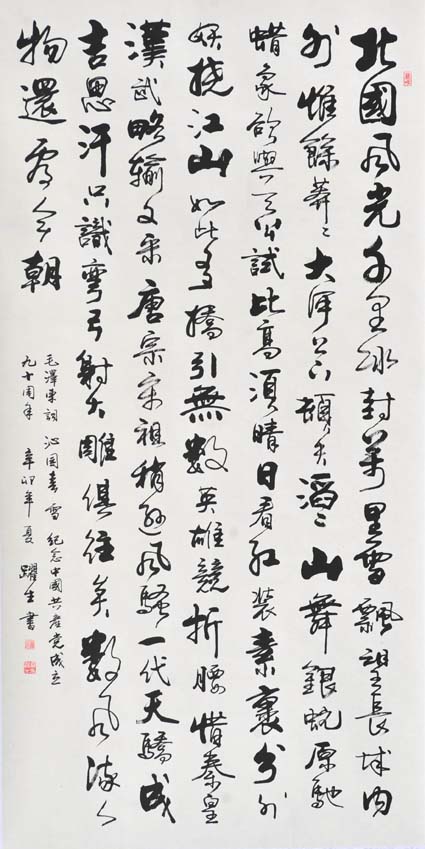 北國风光千里冰封萬里雪飄望長城內
外惟餘莽〻大河上下頓失滔〻山舞銀蛇原馳
蜡象欲與天公試比高須晴日看紅裝素裹分外
妖嬈江山如此多嬌引無數英雄競折腰惜秦皇
漢武略輸文采唐宗宋祖稍遜风騷一代天驕成
吉思汗只識彎弓射大雕俱往矣數风流人
物還看今朝
毛澤東詞 沁園春 雪 紀念中國共產党成立
九十周年 辛卯年夏 躍生書